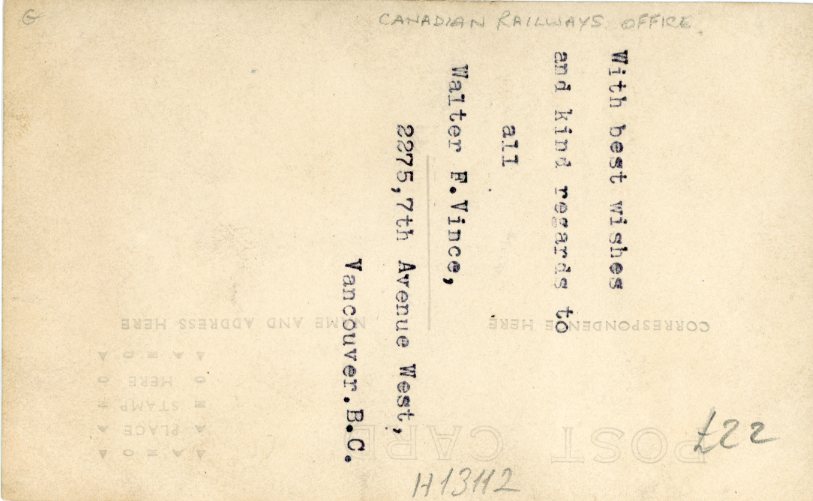 G
CANADIAN RAILWAYS OFFICE.
With best wishes
and kind regards to
all
Walter F.Vince,
2275,7th Avenue West,
Vancouver.B.C.
POST CARD
CORRESPONDENCE HERE
NAME AND ADDRESS HERE
AZO
PLACE
STAMP
HERE
AZO
£22
H13112